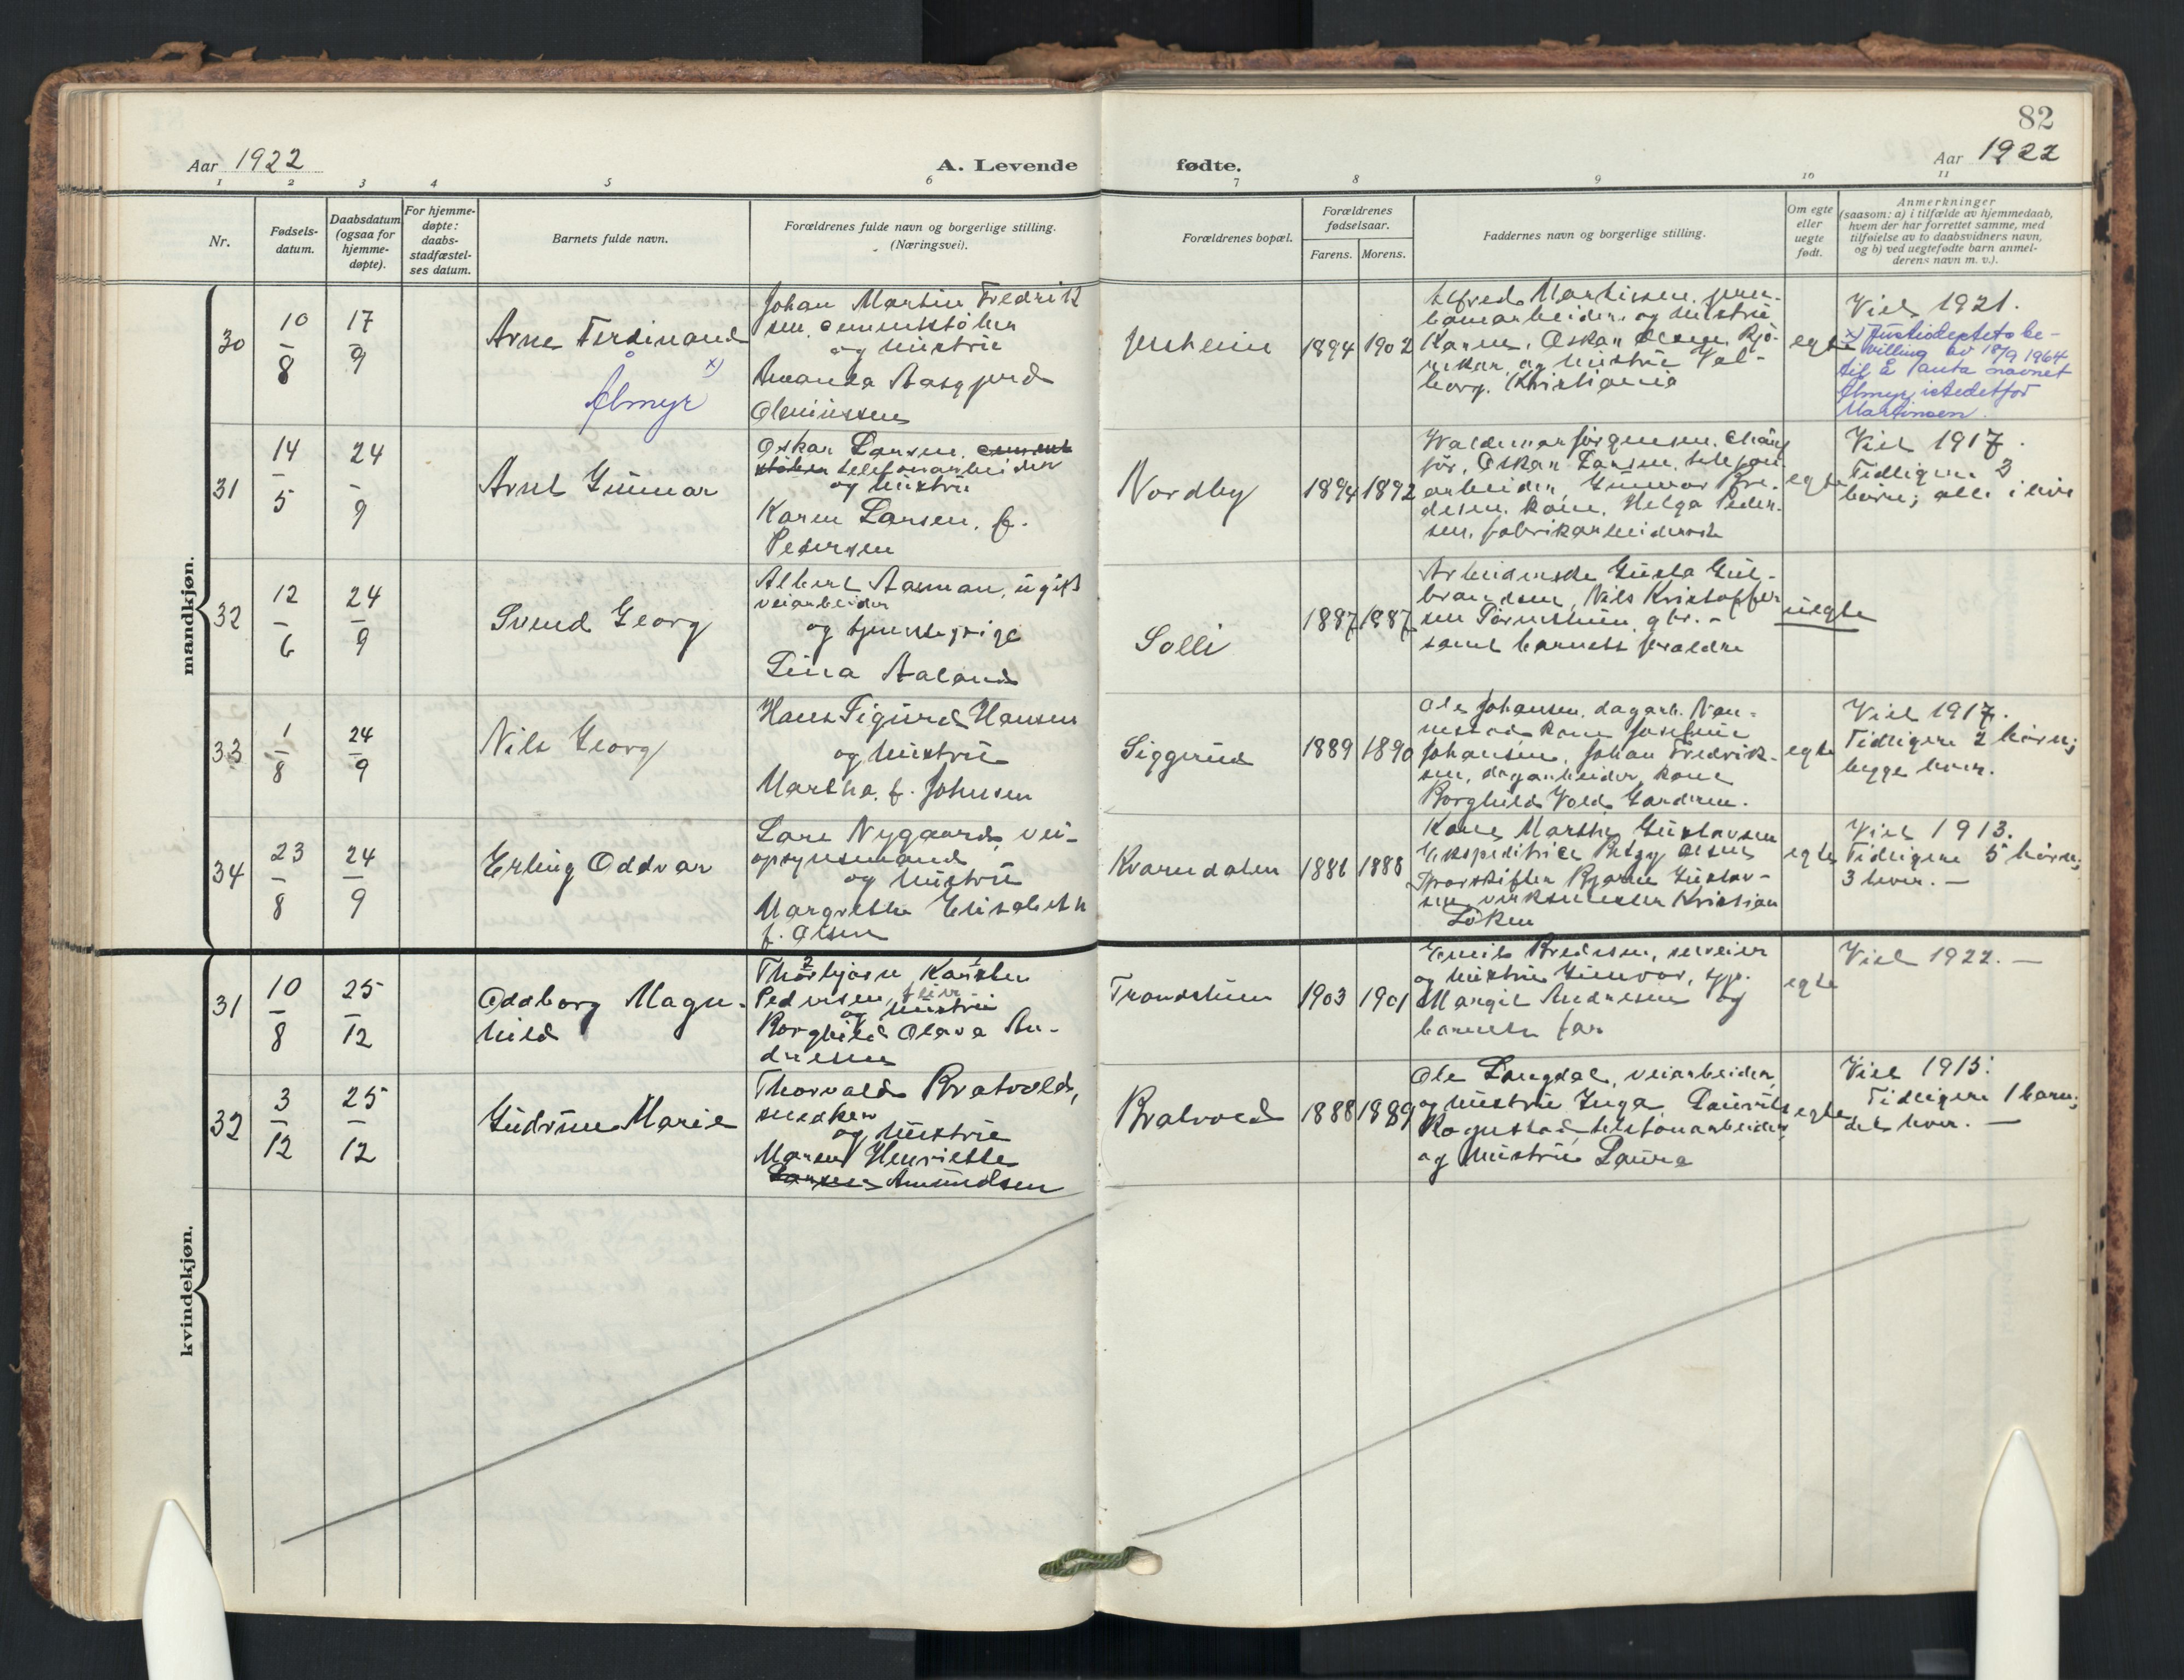 82
Aar 1922
A. Levende
fødte.
Aar 1922
1 2 3 4 5 6 7 8 9 10 11
Nr.
Fødsels-
datum.
Daabsdatum
(ogsaa for
hjemme-
døpte).
For hjemme-
døpte:
daabs-
stadfæstel-
ses datum.
Barnets fulde navn.
Forældrenes fulde navn og borgerlige stilling.
(Næringsvei).
Forældrenes bopæl.
Forældrenes
fødselsaar.
Farens. Morens.
Faddernes navn og borgerlige stilling.
Om egte
eller
uegte
født.
Anmerkninger
(saasom: a) i tilfælde av hjemmedaab,
hvem der har forrettet samme, med
tilføielse av to daabsvidners navn,
og b) ved uegtefødte barn anmel-
derens navn m. v.).
mandkjøn.
30
10/8
17/9
Arne Ferdinand
x)
Åmyr
Johan Martin Fredrik
sen, cementstøber
og hustru
Amanda Aasgjerd
Oleniussen
Jessheim
1894 1902
Alfred Martinsen, jern-
banearbeider og hustru
Karen, Oskar Olsen,
og hustru Val-
borg, Kristiania
egte
Viet 1921.
x) Justisdeptets be-
villing av 18/9 1964
til å anta navnet
Åmyr istedetfor
Martinsen.
31
14/5
24/9
Arnt Gunnar
Oskar Larsen, cement
støber telefonarbeider
og hustru
Karen Larsen, f.
Pedersen
Nordby
1894 1892
Waldemar Jørgensen, chauf
før, Oskar Larsen, telefon
arbeider, Gunvor Bre-
desen, kone, Helga Peder-
sen, fabrikarbeiderske
egte
Viet 1917.
Tidligere 3
børn; alle i live
32
12/6
24/9
Svend Georg
Albert Aaman, ugift
veiarbeider
og tjenestepige
Lina Aaland
Solli
1887 1887
Arbeiderske Gusta Gul-
brandsen, Nils Kristoffer
sen gbr. -
samt barnets forældre
uegte
33
1/8
24/9
Nils Georg
Hans Sigurd Hansen
og hustru
Martha, f. Johnsen
Siggerud
1889 1890
Ole Johansen, dagarb. Nau-
nestad kone Josefine
Johansen, Johan Fredrik-
sen, dagarbeider, kone
Borghild Vold Garderen.
egte
Viet 1917.
Tidligere 2 børn;
begge lever.
34
23/8
24/9
Erling Oddvar
Lars Nygaard, vei-
opsynsmand
og hustru
Margrethe Elisabeth
f. Olsen
Kvarndalen
1881 1888
Kone Marthe Gustavsen
Ekspeditrice Betsy Olsen
Sporskifter Bjarne Gustav-
sen, verksmester Kristian
Løken
egte
Viet 1913.
Tidligere 5 børn;
3 lever. -
kvindekjøn.
31
10/8
25/12
Oddborg Magn-
hild
2 1
Thorbjørn Karsten
Pedersen, feier
og hustru
Borghild Olava An-
dresen
Trondshuen
1903 1901
Emil Bredesen, serveier
og hustru Gunvor, spp.
Margit Andresen og
barnets far
egte
Viet 1922. -
32
3/12
25/12
Gudrun Marie
Thorvald Bratvold,
snedker
og hustru
Maren Henriette
Larsen Amundsen
Bratvold
1888 1889
Ole Langdal, veiarbeider,
og hustru Inga, Lauritz
Rogustad, telefonarbeider,
og hustru Laura
egte
Viet 1915.
Tidligere 1 barn;
det lever. -